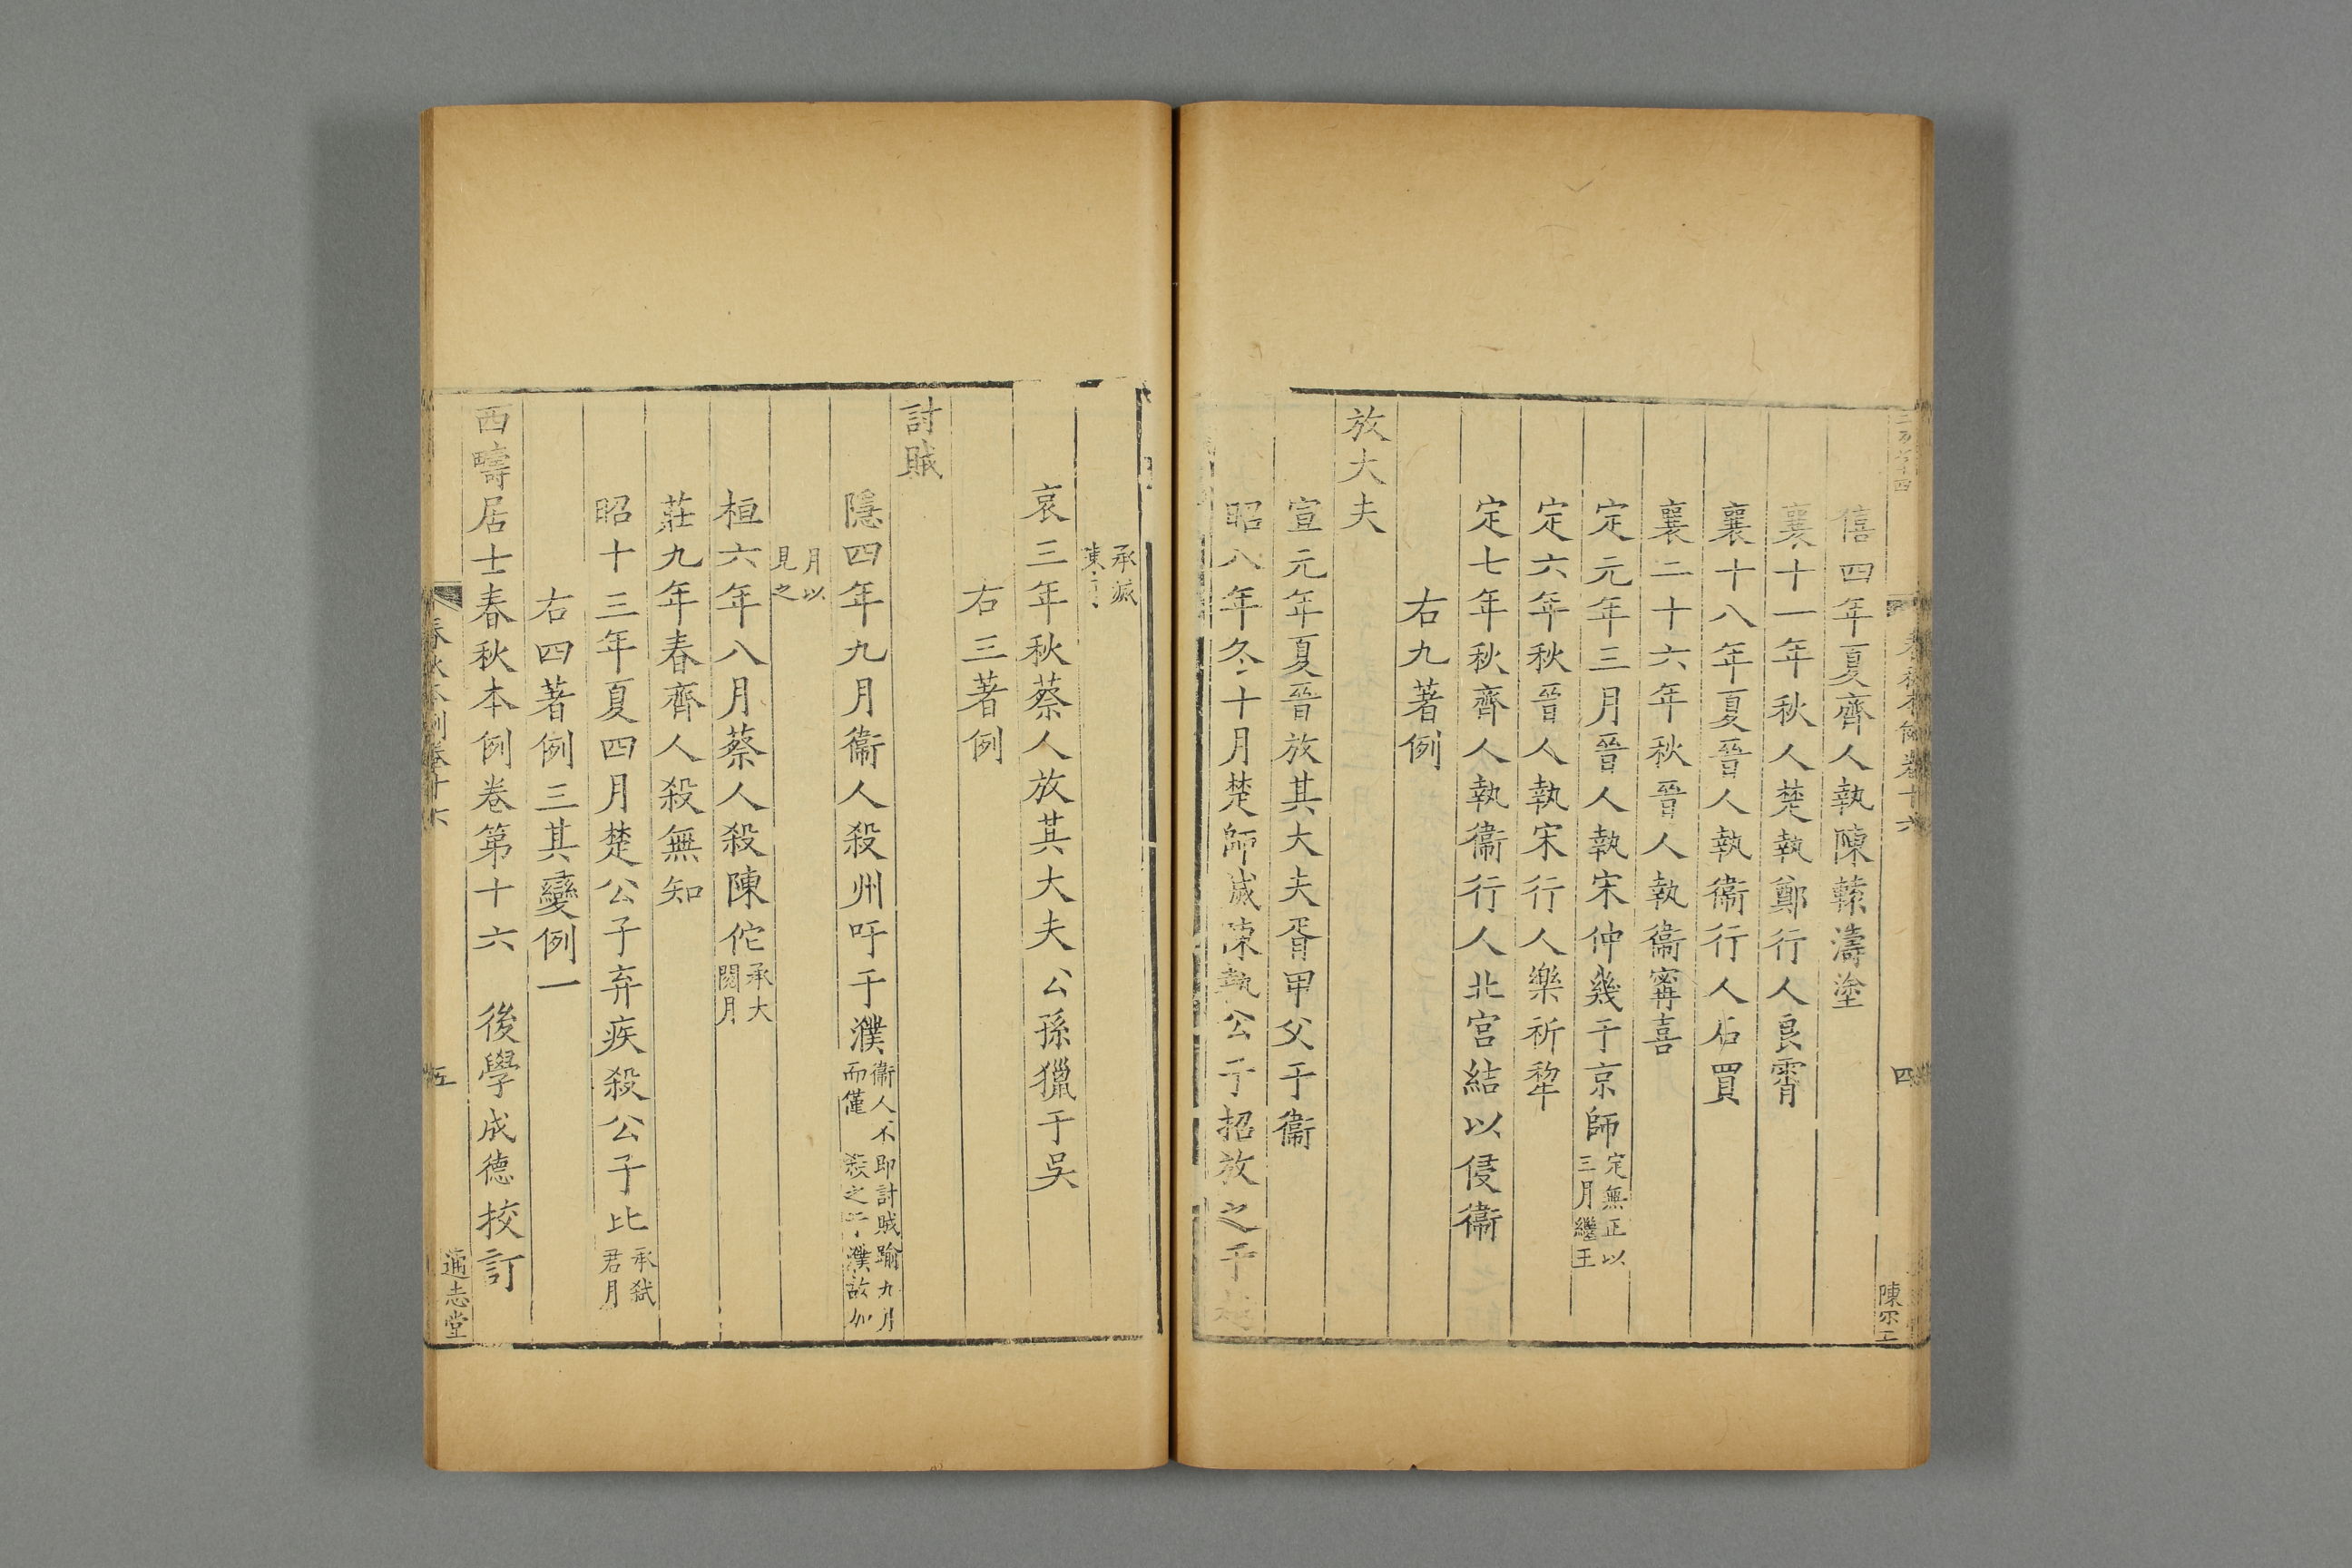 春秋本例卷十六
四
僖四年夏齊人執陳轅濤塗
襄十一年秋人楚執鄭行人良霄
襄十八年夏晉人執衞行人石買
襄二十六年秋晉人執衞甯喜
定元年三月晉人執宋仲幾于京師定無正以三月繼王
定六年秋晉人執宋行人樂祈犂
定七年秋齊人執衞行人北宫結以侵衞
右九著例
放大夫
宣元年夏晉放其大夫胥甲父于衞
昭八年冬十月楚師滅陳執公子招放之于越
承滅
哀三年秋蔡人放其大夫公孫獵于吳
右三著例
討賊
隱四年九月衞人殺州吁于濮衞人不即討賊踰九月而僅殺之于濮故加
月以見之
桓六年八月蔡人殺陳佗承大閱月
莊九年春齊人殺無知
昭十三年夏四月楚公子弃疾殺公子比承弑君月
右四著例三其變例一
西疇居士春秋本例卷第十六 後學成德挍訂
春秋本例卷十六
五
通志堂